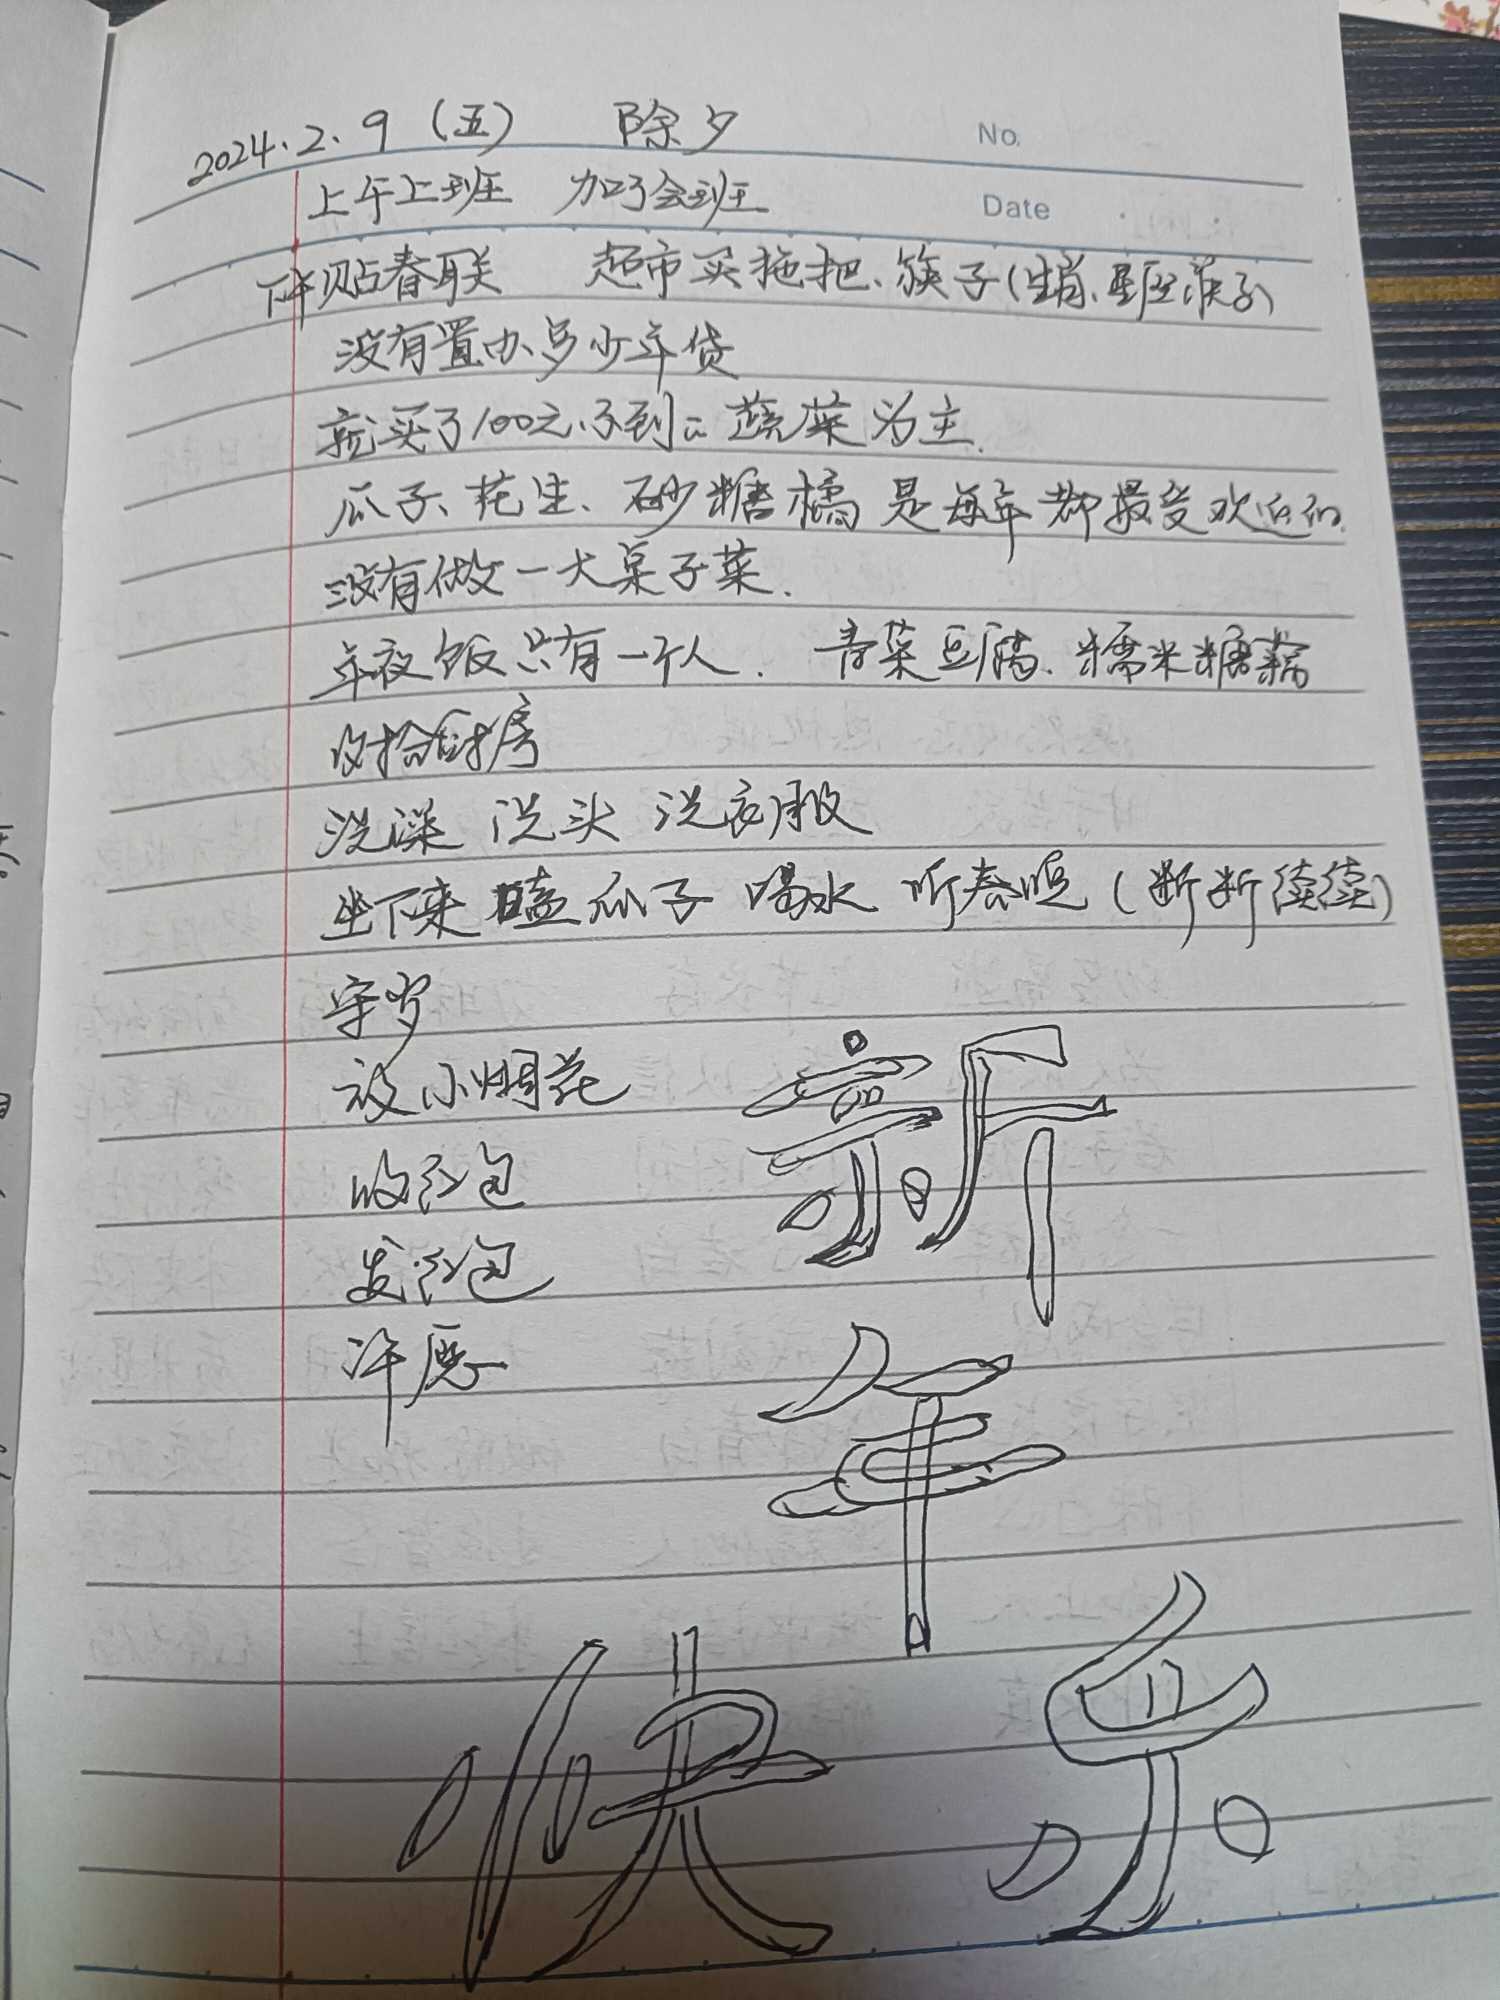 2024.2.9(五) 除夕 No.
上午上班 加了会班 Date
下午贴春联 超市买拖把、筷子(生肖、
没有置办多少年货
就买了100元不到 蔬菜为主.
瓜子、花生、砂糖橘是每年都最受欢迎的.
没有做一大桌子菜.
年夜饭只有一个人. 青菜豆腐、糯米糖藕
收拾厨房
洗澡 洗头 洗衣服
坐下来 嗑瓜子 喝水 听春晚(断断续续)
守岁
放小烟花
收红包
发红包
许愿
新
年
快 乐